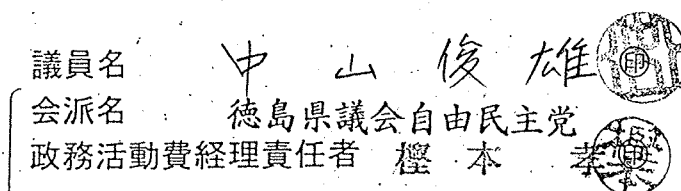 議員名 中山俊雄 ㊞
会派名 徳島県議会自由民主党
政務活動費経理責任者 樫本孝 ㊞